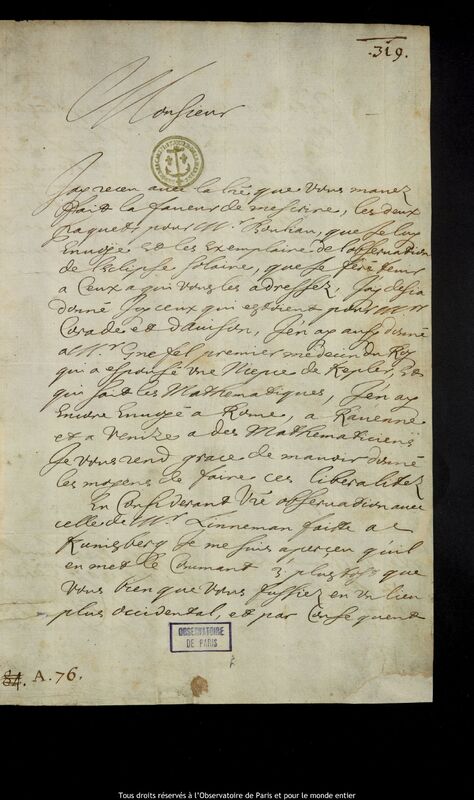 .319.
Monsieur
J'ay receu avec la lr̃e que vous m'avez
fait la faveur de m'escrire, les deux
paquets pour M. Boulliau, que je luy
Envoye Et les Exemplaire de l'observation
de l'Eclipse solaire, que je feré tenir
a Ceux a qui vous les adressez, J'ay desia
donné icy ceux qui estoient pour Mrs
et d'avison, J'en ay aussi donné
a M.r premier medecin du Roy
qui a espousé une Niepce de Kepler, Et
qui sait les Mathematiques, J'en ay
Encore Envoyé a Rome, a Ravenne
et a Venize a des Mathematiciens
Je vous rend grace de m'avoir donné
les moyens de faire ces liberalitez
En Considerant Vr̃e observation avec
celle de Mr Linneman faitte a
Kunigsberg Je me suis aperceu qu'il
en met le Comancement plus tost que
vous bien que vous fussiez en un lieu
plus occidental, et par Consequent
OBSERVATOIRE
DE PARIS
84. A. 76.
Tous droits réservés à l'Observatoire de Paris et pour le monde entier